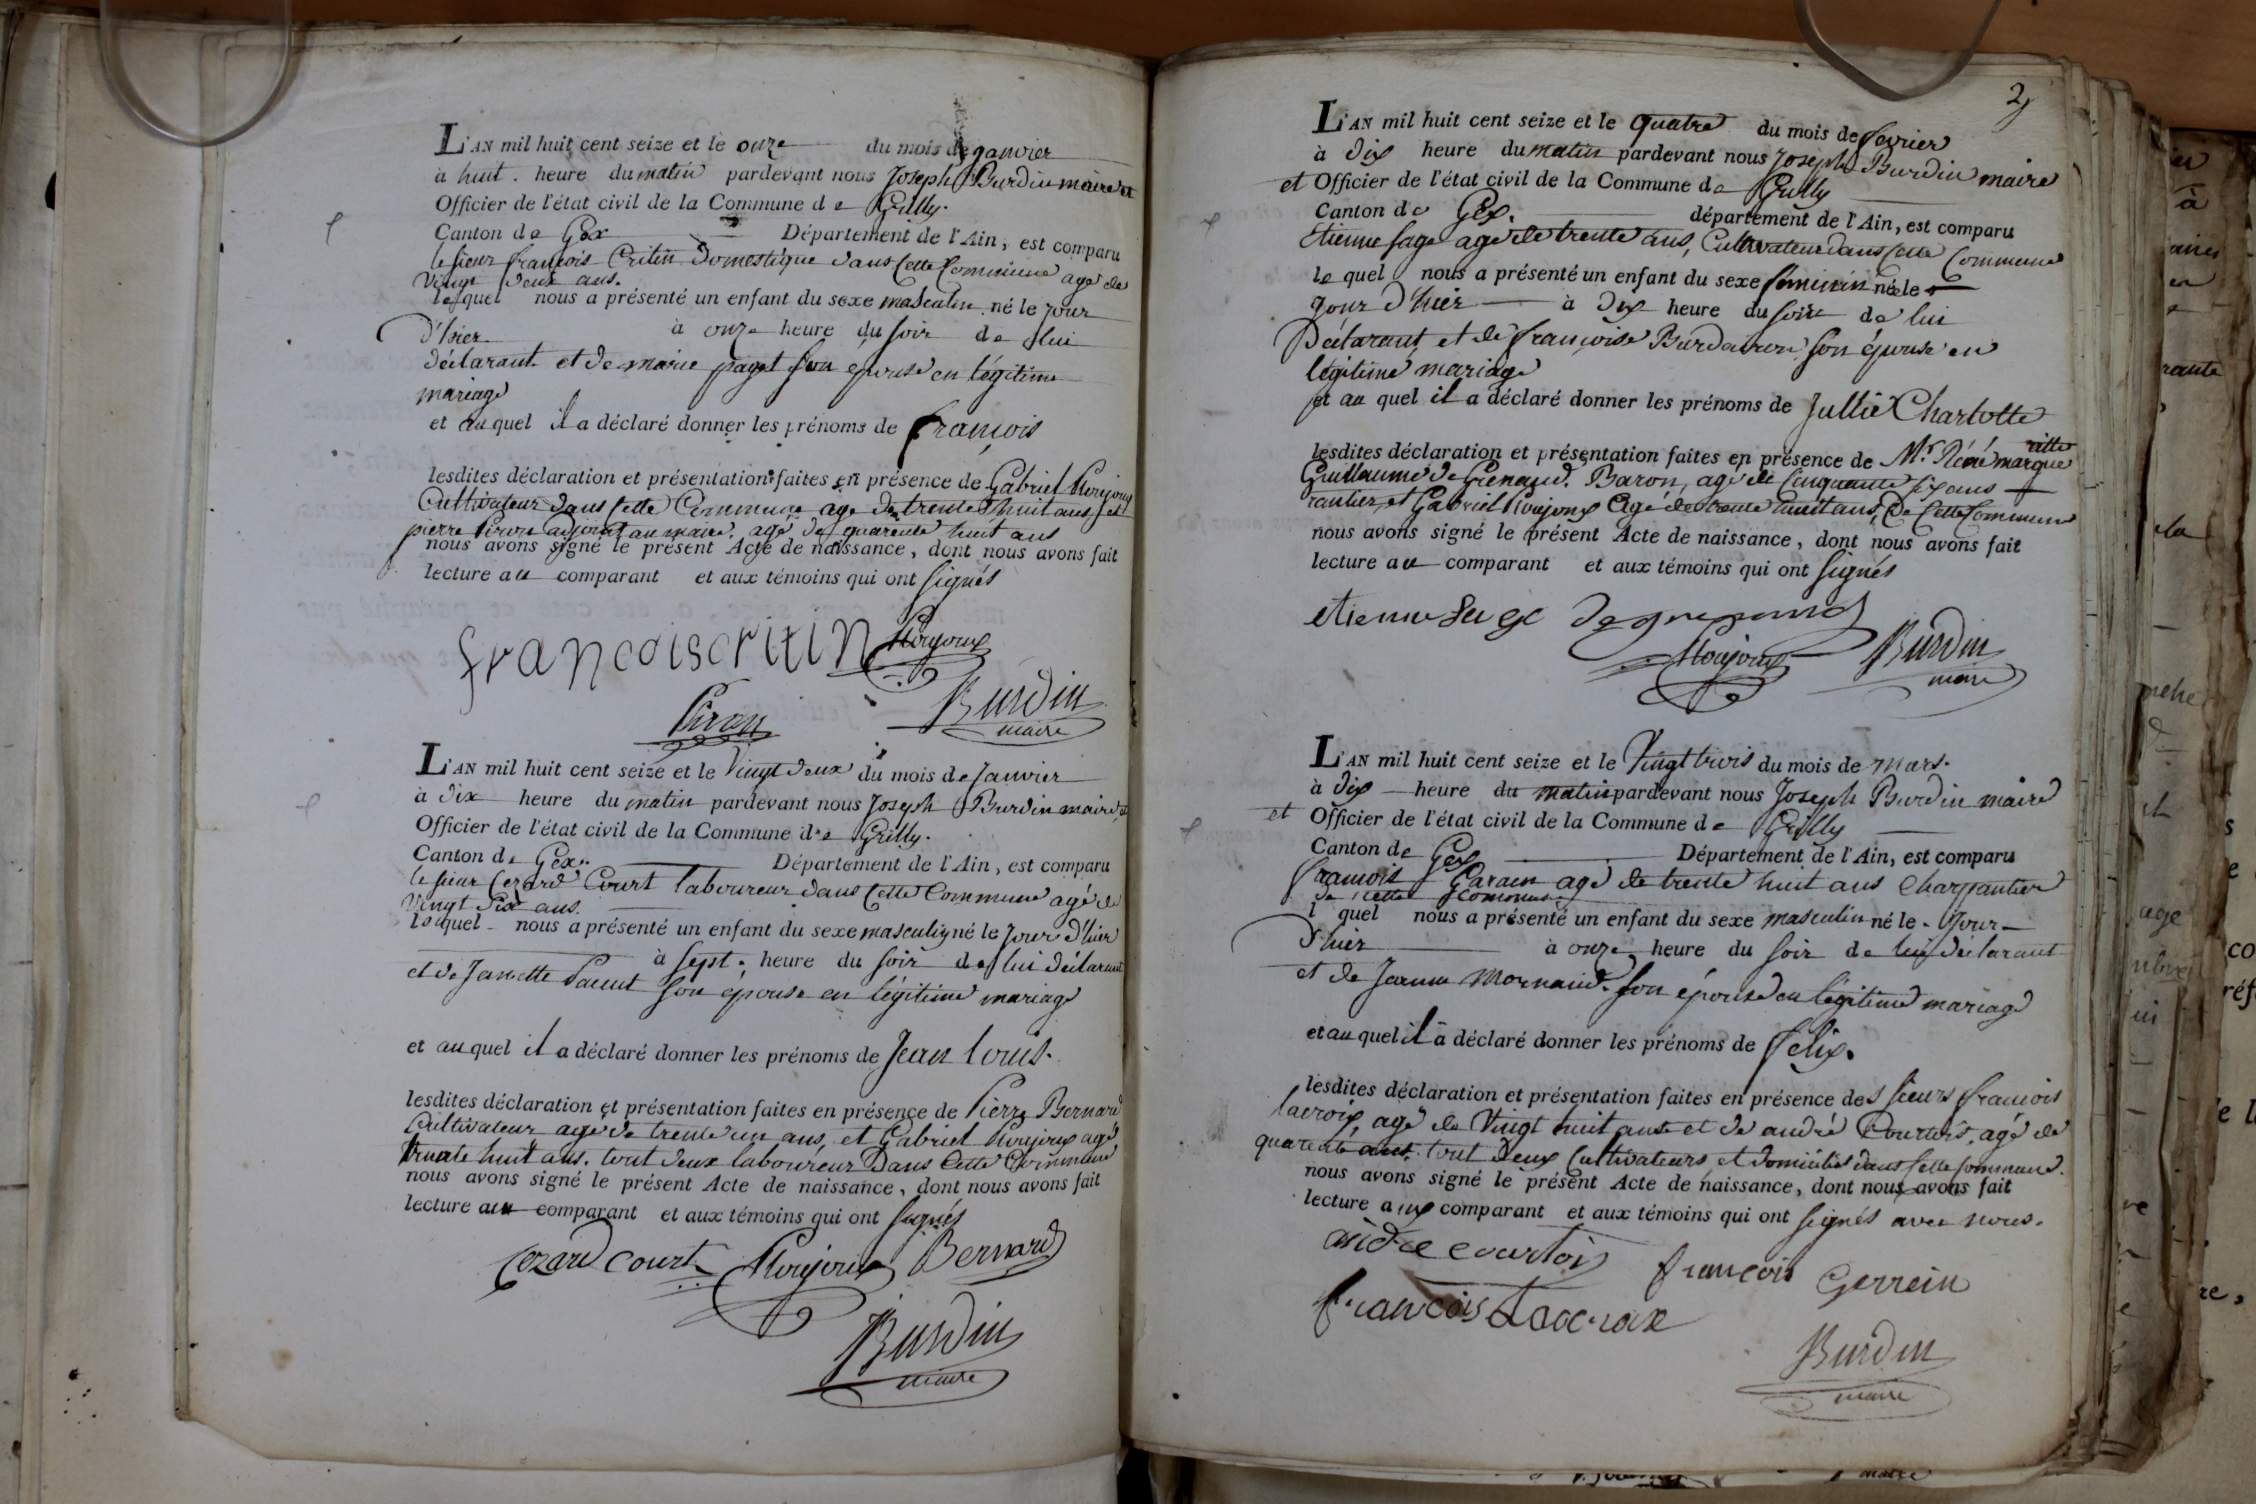 L'AN mil huit cent seize et le onze du mois de janvier
à huit heure du matin pardevant nous Joseph Burdin maire et
Officier de l'état civil de la Commune de Grilly.
Canton de Gex Département de l'Ain, est comparu
le sieur françois Critin Domestique dans Cette Commune agé de
Vingt deux ans.
lequel nous a présenté un enfant du sexe masculin né le jour
d'hier à onze heure du soir de lui
déclarant et de marie payet son epouse en légitime
mariage
et auquel il a déclaré donner les prénoms de françois
lesdites déclaration et présentation faites en présence de Gabriel
Cultivateur dans Cette Commune agé de trente huit ans, et
pierre Piron adjoint au maire, agé de quarente huit ans
nous avons signé le présent Acte de naissance, dont nous avons fait
lecture au comparant et aux témoins qui ont signés
francoiscritin
Piron
Burdin
maire
L'AN mil huit cent seize et le Vingt deux du mois de Janvier
à dix heure du matin pardevant nous Joseph Burdin maire et
Officier de l'état civil de la Commune de Grilly.
Canton de Gex. Département de l'Ain, est comparu
le sieur Cezard Court laboureur dans Cette Commune agé de
Vingt Six ans.
lequel nous a présenté un enfant du sexe masculin né le jour d'hier
à sept heure du soir de lui déclarant
et de Jeanette son épouse en légitime mariage
et auquel il a déclaré donner les prénoms de Jean Louis.
lesdites déclaration et présentation faites en présence de Pierre Bernard
Cultivateur agé de trente un ans, et Gabriel agé
trente huit ans. tout deux laboureur Dans Cette Commune
nous avons signé le présent Acte de naissance, dont nous avons fait
lecture au comparant et aux témoins qui ont signés
Cezard Court Bernard
Burdin
maire
2
L'AN mil huit cent seize et le quatre du mois de fevrier
à dix heure du matin pardevant nous Joseph Burdin maire
et Officier de l'état civil de la Commune de Grilly
Canton de Gex. département de l'Ain, est comparu
Etienne Sage agé de trente ans, Cultivateur dans Cette Commune
lequel nous a présenté un enfant du sexe féminin née le
jour d'hier à dix heure du soir de lui
Déclarant et de françoise son épouse en
légitime mariage
et au quel il a déclaré donner les prénoms de Jullie Charlotte
lesdites déclaration et présentation faites en présence de Mr. Réné marque
ritte
Guillaume de Grenaud. Baron, agé de Cinquante six ans
rantier et Gabriel Agé de trente huit ans, De Cette Commune
nous avons signé le présent Acte de naissance, dont nous avons fait
lecture au comparant et aux témoins qui ont signés
etienne Sage Degrenaud
Burdin
maire
L'AN mil huit cent seize et le Vingt trois du mois de mars.
à dix heure du matin pardevant nous Joseph Burdin maire
et Officier de l'état civil de la Commune de Grilly
Canton de Gex Département de l'Ain, est comparu
françois agé de trente huit ans Charpantier
de cette Commune
l quel nous a présenté un enfant du sexe masculin né le jour
d'hier à onze heure du soir de lui déclarant
et de Jeanne son épouse en légitime mariage
et au quel il a déclaré donner les prénoms de félix.
lesdites déclaration et présentation faites en présence des sieurs françois
lacroix, agé de Vingt huit ans et de andré Courtois, agé de
quarente ans. tout deux Cultivateurs et domiciliés dans Cette Commune.
nous avons signé le présent Acte de naissance, dont nous avons fait
lecture aux comparant et aux témoins qui ont signés avec nous.
andre courtois
francois Gerrein
francois Lacroix
Burdin
maire